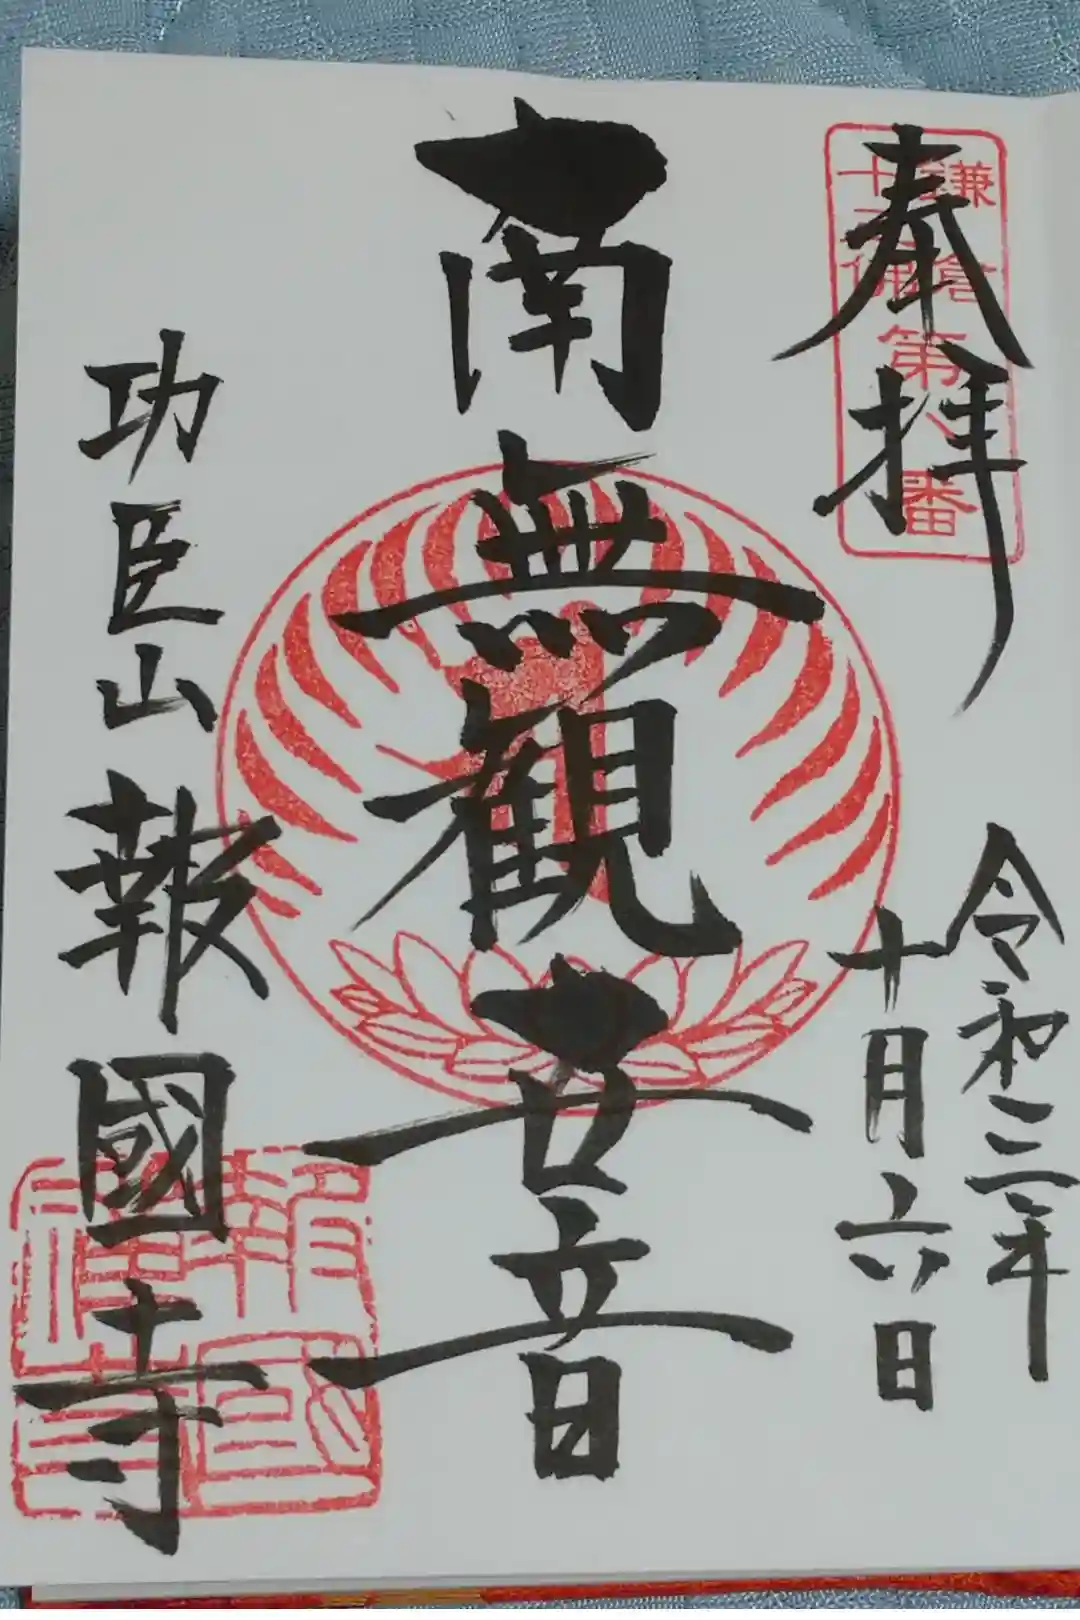 奉拝
鎌倉
十三佛
第八番
令和三年
十月六日
南無観世音
功臣山報國寺